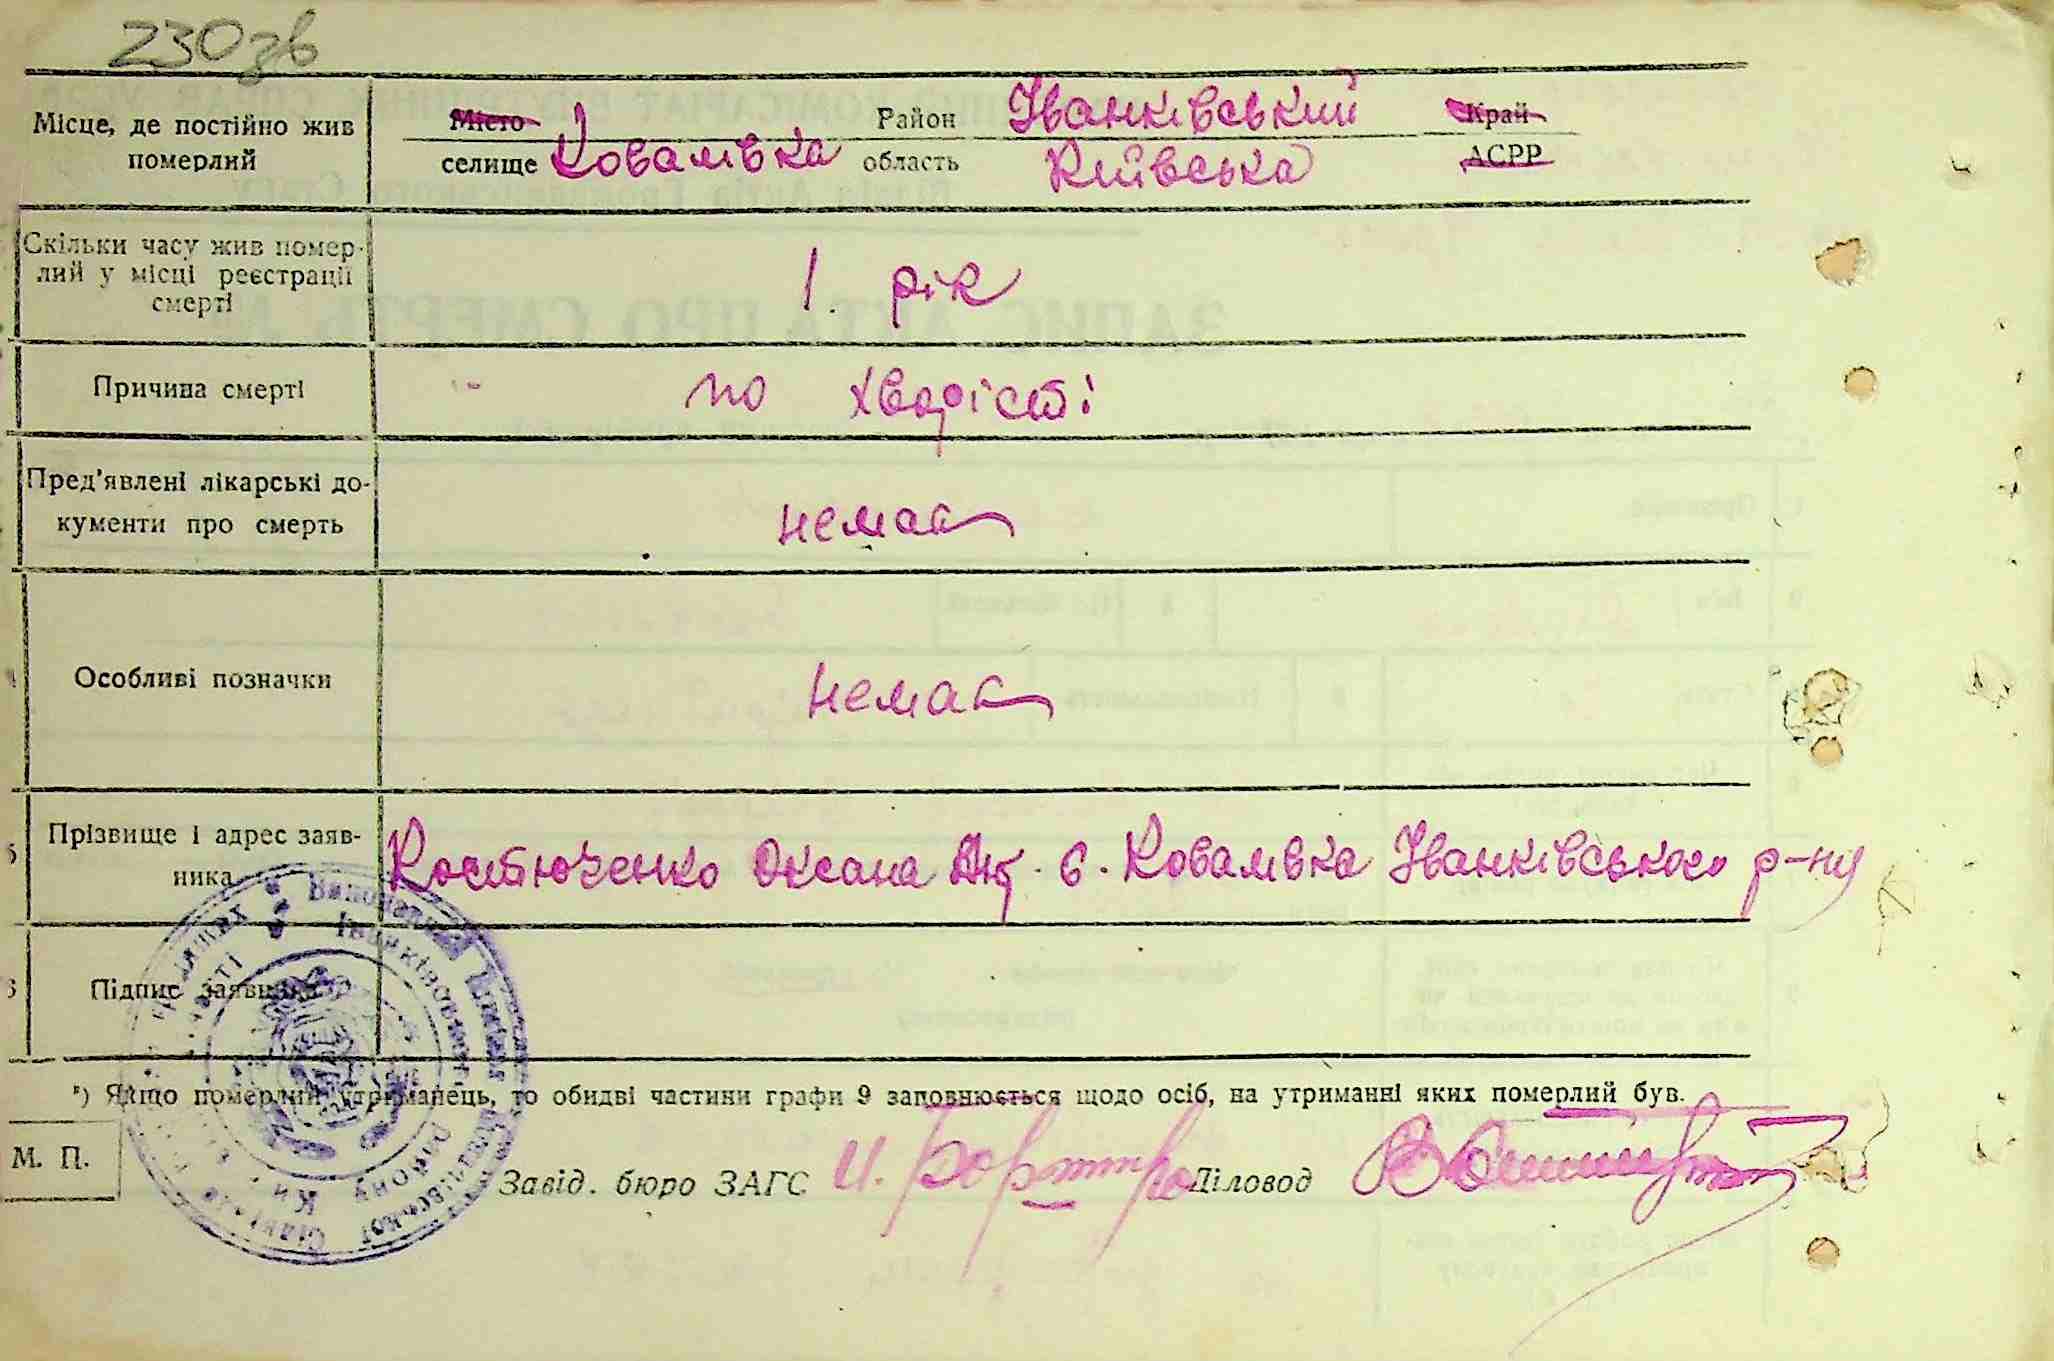 230зв
Місце, де постійно жив померлий
Місто
селище Ковалівка
Район
область
Іванківський
Київська
Край
АСРР
Скільки часу жив помер-
лий у місці реєстрації
смерті
1 рік
Причина смерті
по хворісті
Пред'явлені лікарські до-
кументи про смерть
немає
Особливі позначки
немає
5
Прізвище і адрес заяв-
ника
Костюченко Оксана с. Ковалівка Іванківського р-ну
6
Підпис заявника
*) Якщо померлий утриманець, то обидві частини графи 9 заповнюється щодо осіб, на утриманні яких померлий був.
М. П.
Завід. бюро ЗАГС
Діловод